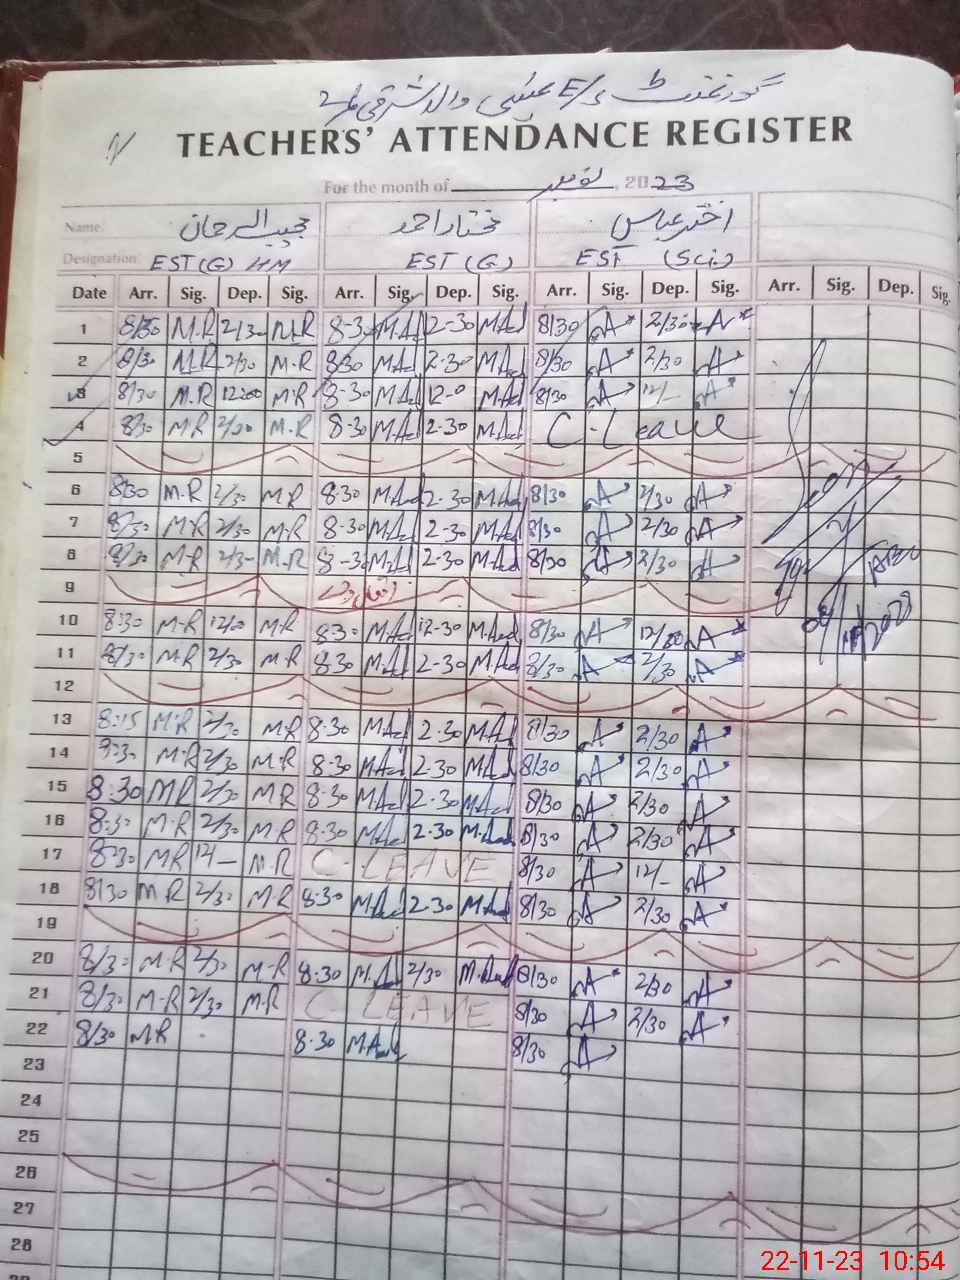 گورنمنٹ E/S عیسی والا شرقی
TEACHERS' ATTENDANCE REGISTER
For the month of نومبر, 2023
Name: مجیب الرحمان مختار احمد اختر عباس
Designation: EST (G) HM EST (G) EST (Sci)
Date Arr. Sig. Dep. Sig. Arr. Sig. Dep. Sig. Arr. Sig. Dep. Sig. Arr. Sig. Dep. Sig.
1 8/30 M.R 2/30 M.R 8-30 MAd 2-30 MAd 8/30 A 2/30 A
2 8/30 M.R 2/30 M.R 8/30 MAd 2-30 MAd 8/30 A 2/30 A
3 8/30 M.R 12200 M.R 8-30 MAd 12-0 MAd 8/30 A 12/- A
4 8/30 M.R 2/30 M.R 8-30 MAd 2-30 MAd C-Leave
5
6 8/30 M.R 2/30 M.R 8-30 MAd 2-30 MAd 8/30 A 2/30 A
7 8/30 M.R 2/30 M.R 8-30 MAd 2-30 MAd 8/30 A 2/30 A
8 8/30 M.R 2/30 M.R 8-30 MAd 2-30 M.Ad 8/30 A 2/30 A
9
10 8/30 M.R 12/00 M.R 8-30 MAd 12-30 M.Ad 8/30 A 12/00 A
11 8/30 M.R 2/30 M.R 8-30 MAd 2-30 M.Ad 8/30 A 2/30 A
12
13 8:15 M.R 2/30 M.R 8-30 MAd 2-30 MAd 8/30 A 2/30 A
14 M.R 2/30 M.R 8-30 MAd 2-30 MAd 8/30 A 2/30 A
15 8:30 MR 2/30 MR 8-30 MAd 2-30 MAd 8/30 A 2/30 A
16 8:30 M.R 2/30 M.R 8-30 MAd 2-30 M.Ad 8/30 A 2/30 A
17 8:30 MR 12- M.R C-LEAVE 8/30 A 12/- A
18 8/30 MR 2/30 M.R 8-30 MAd 2-30 MAd 8/30 A 2/30 A
19
20 8/30 M.R 2/30 M.R 8-30 M.Ad 2/30 M.Ad 8/30 A 2/30 A
21 8/30 M.R 2/30 M.R C-LEAVE 8/30 A 2/30 A
22 8/30 MR 8-30 MAd 8/30 A
23
24
25
26
27
28
22-11-23 10:54